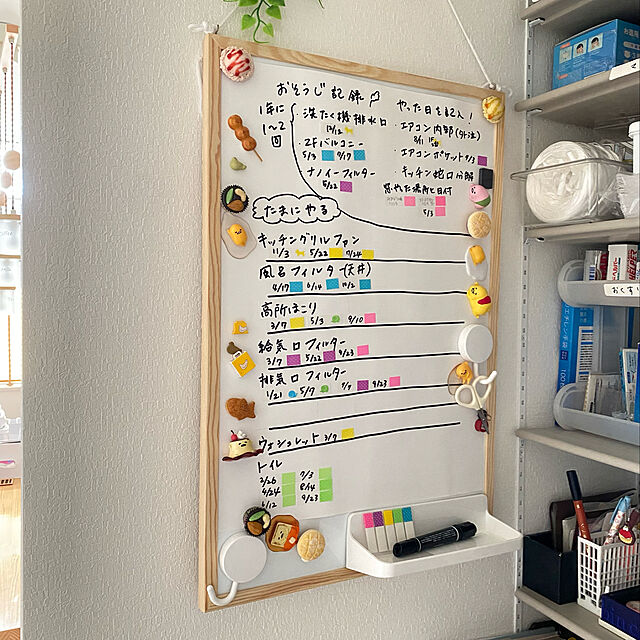 おそうじ記録
やった日を記入!
1年に
1〜2
回
・洗たく機排水口
12/12
・2Fバルコニー
5/3 9/17
ナノイーフィルター
5/22
・エアコン内部(外注)
8/1
・エアコンポケット 9/3
・キッチン蛇口分解
5/3
たまにやる
キッチングリルファン
11/3 5/22 7/24
風呂フィルター(天井)
4/17 6/14 10/2
高所ほこり
3/7 5/3 9/10
給気口フィルター
3/7 5/22 9/23
排気口フィルター
1/21 5/9 7/9 9/23
ウォシュレット 3/7
トイレ
2/26 7/3
4/24 8/14
6/12 9/23
おくすり
HELPER
100